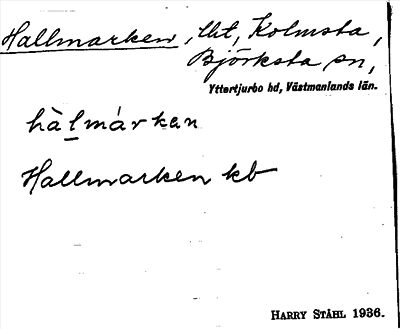 Hallmarken, Ut, Kolmsta,
Björksta sn,
Yttertjurbo hd, Västmanlands län.
hàlmárkan
Hallmarken kb
HARRY STÅHL 1936.